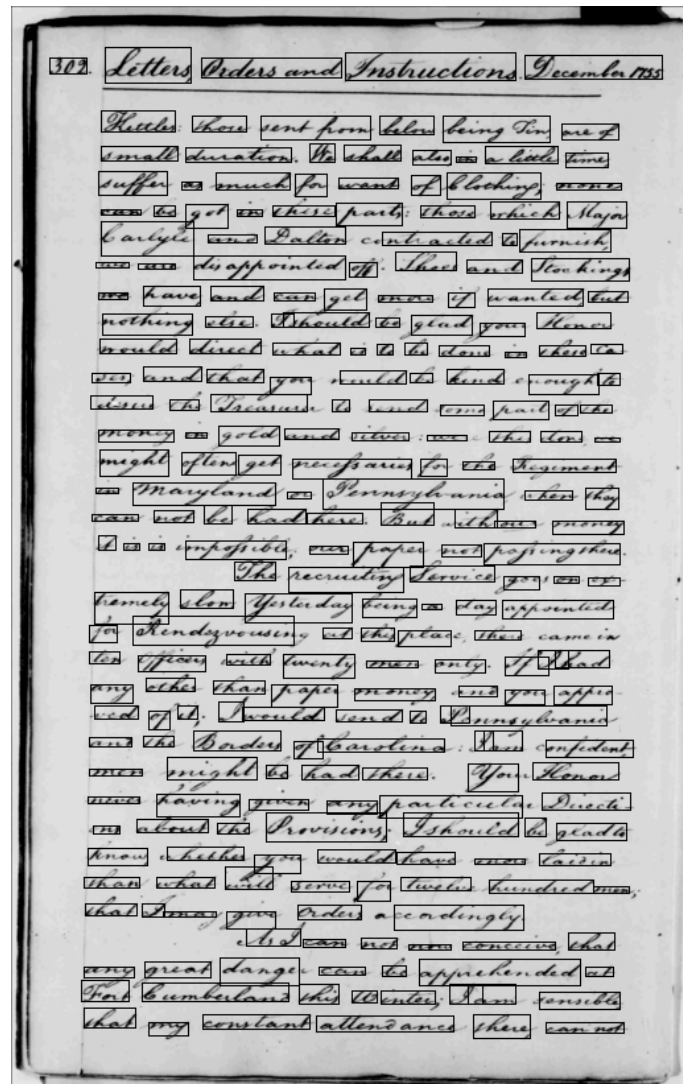 302. Letters Orders and Instructions. December 1755
Kettles: those sent from below being Tin, are of
small duration. We shall also in a little time
suffer as much for want of Clothing; none
can be got in these parts: those which Major
Carlyle and Dalton contracted to furnish,
we are disappointed off. Shoes and Stockings
we have, and can get more if wanted, but
nothing else. I should be glad your Honor
would direct what is to be done in these ca-
ses; and that you would be kind enough to
desire the Treasurer to send some part of the
money in gold and silver: were this done, we
might often get necessaries for the Regiment
in Maryland or Pennsylvania when they
can not be had here. But with our money
it is is impossible, our paper not passing there.
The recruiting Service goes on ex-
tremely slow. Yesterday being a day appointed
for Rendezvousing at this place, there came in
ten Officers with twenty men only. If I had
any other than paper money and you appro-
ved of it; I would send to Pennsylvania
and the Borders of Carolina: I am confident,
men might be had there. Your Honor
never having given any particular Directi-
ons about the Provisions; I should be glad to
know whether you would have more laid in
than what will serve for twelve hundred men;
that I may give Orders accordingly.
As I can not now conceive, that
any great danger can be apprehended at
Fort Cumberland this Winter; I am sensible
that my constant attendance there can not